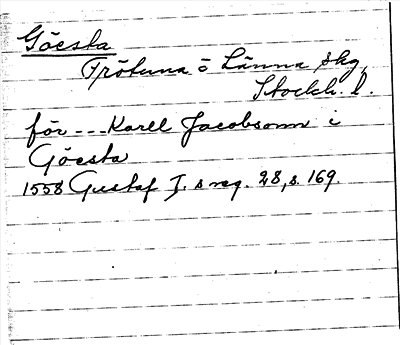 Göcsta
Frötuna o Länna skg,
Stockh. l.
för --- Karll Jacobsonn i
Göcsta
1558 Gustaf I. s reg. 28, s. 169.